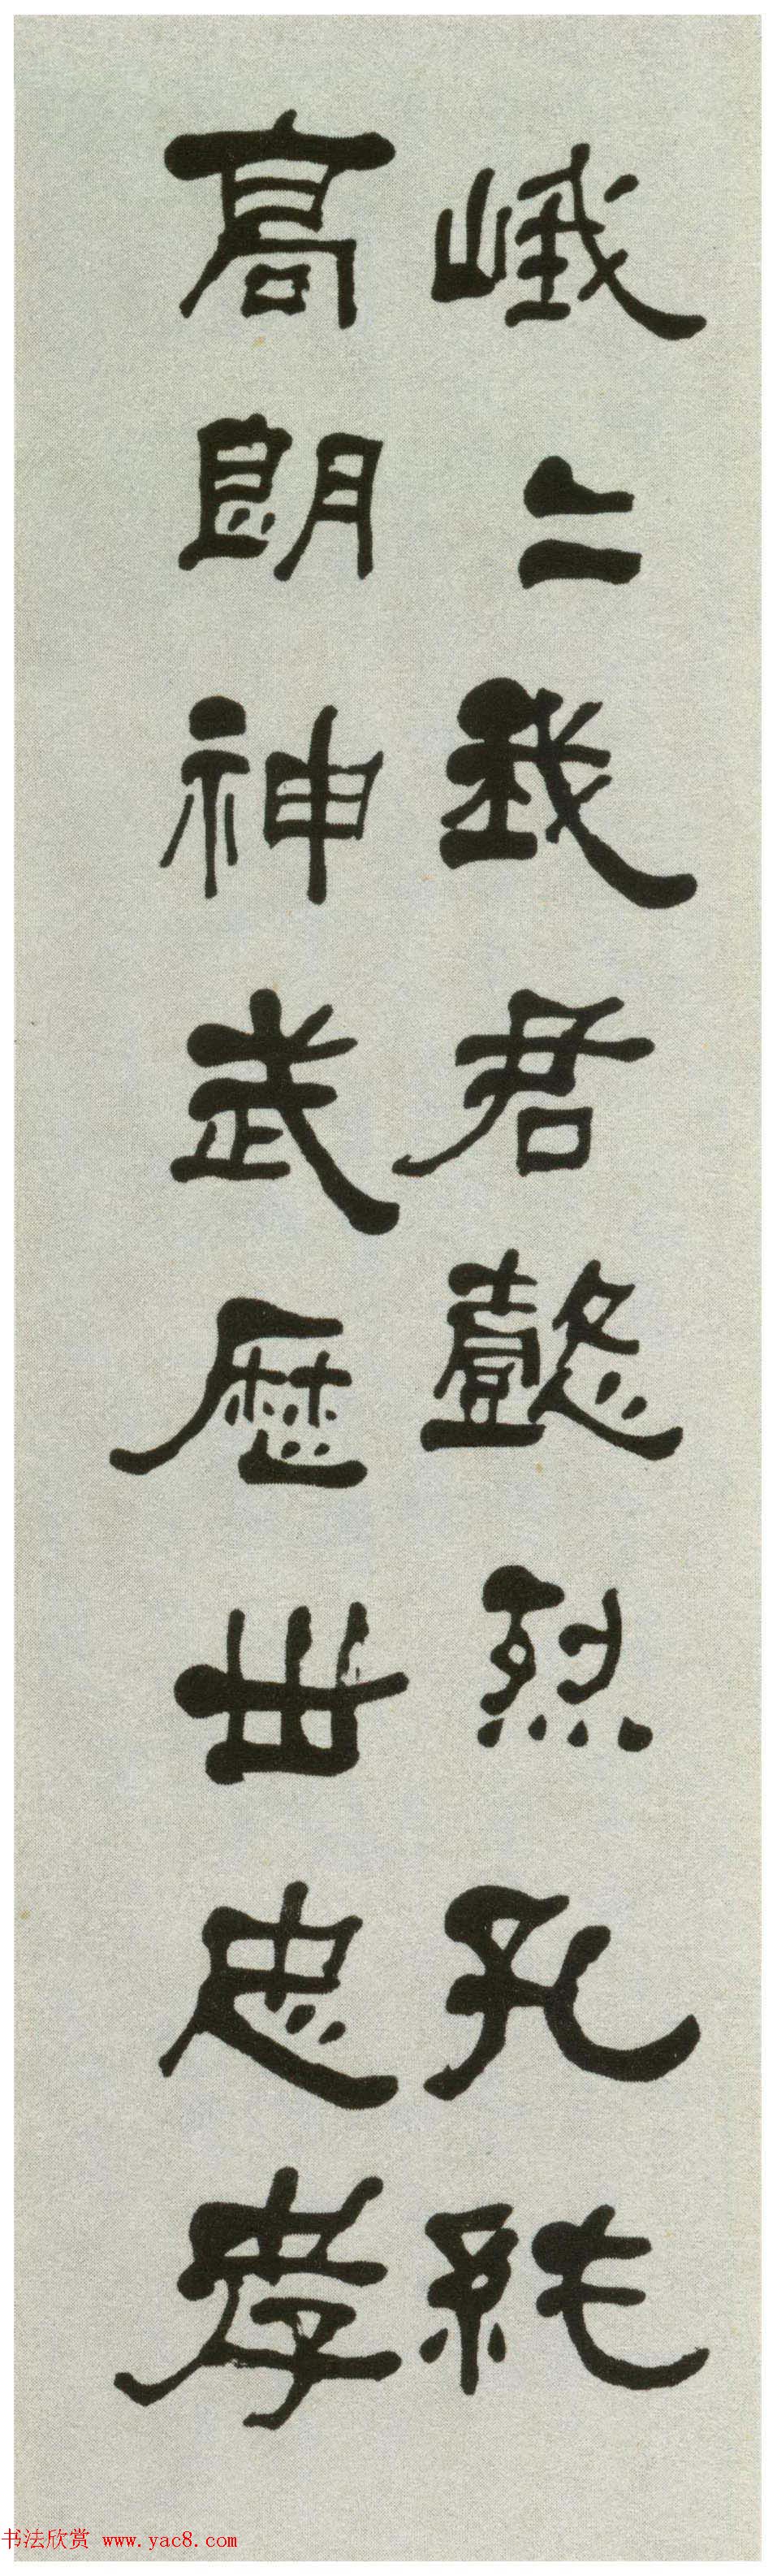 峨〻我君懿烈孔純
高朗神武歷世忠孝
书法欣赏 www.yac8.com